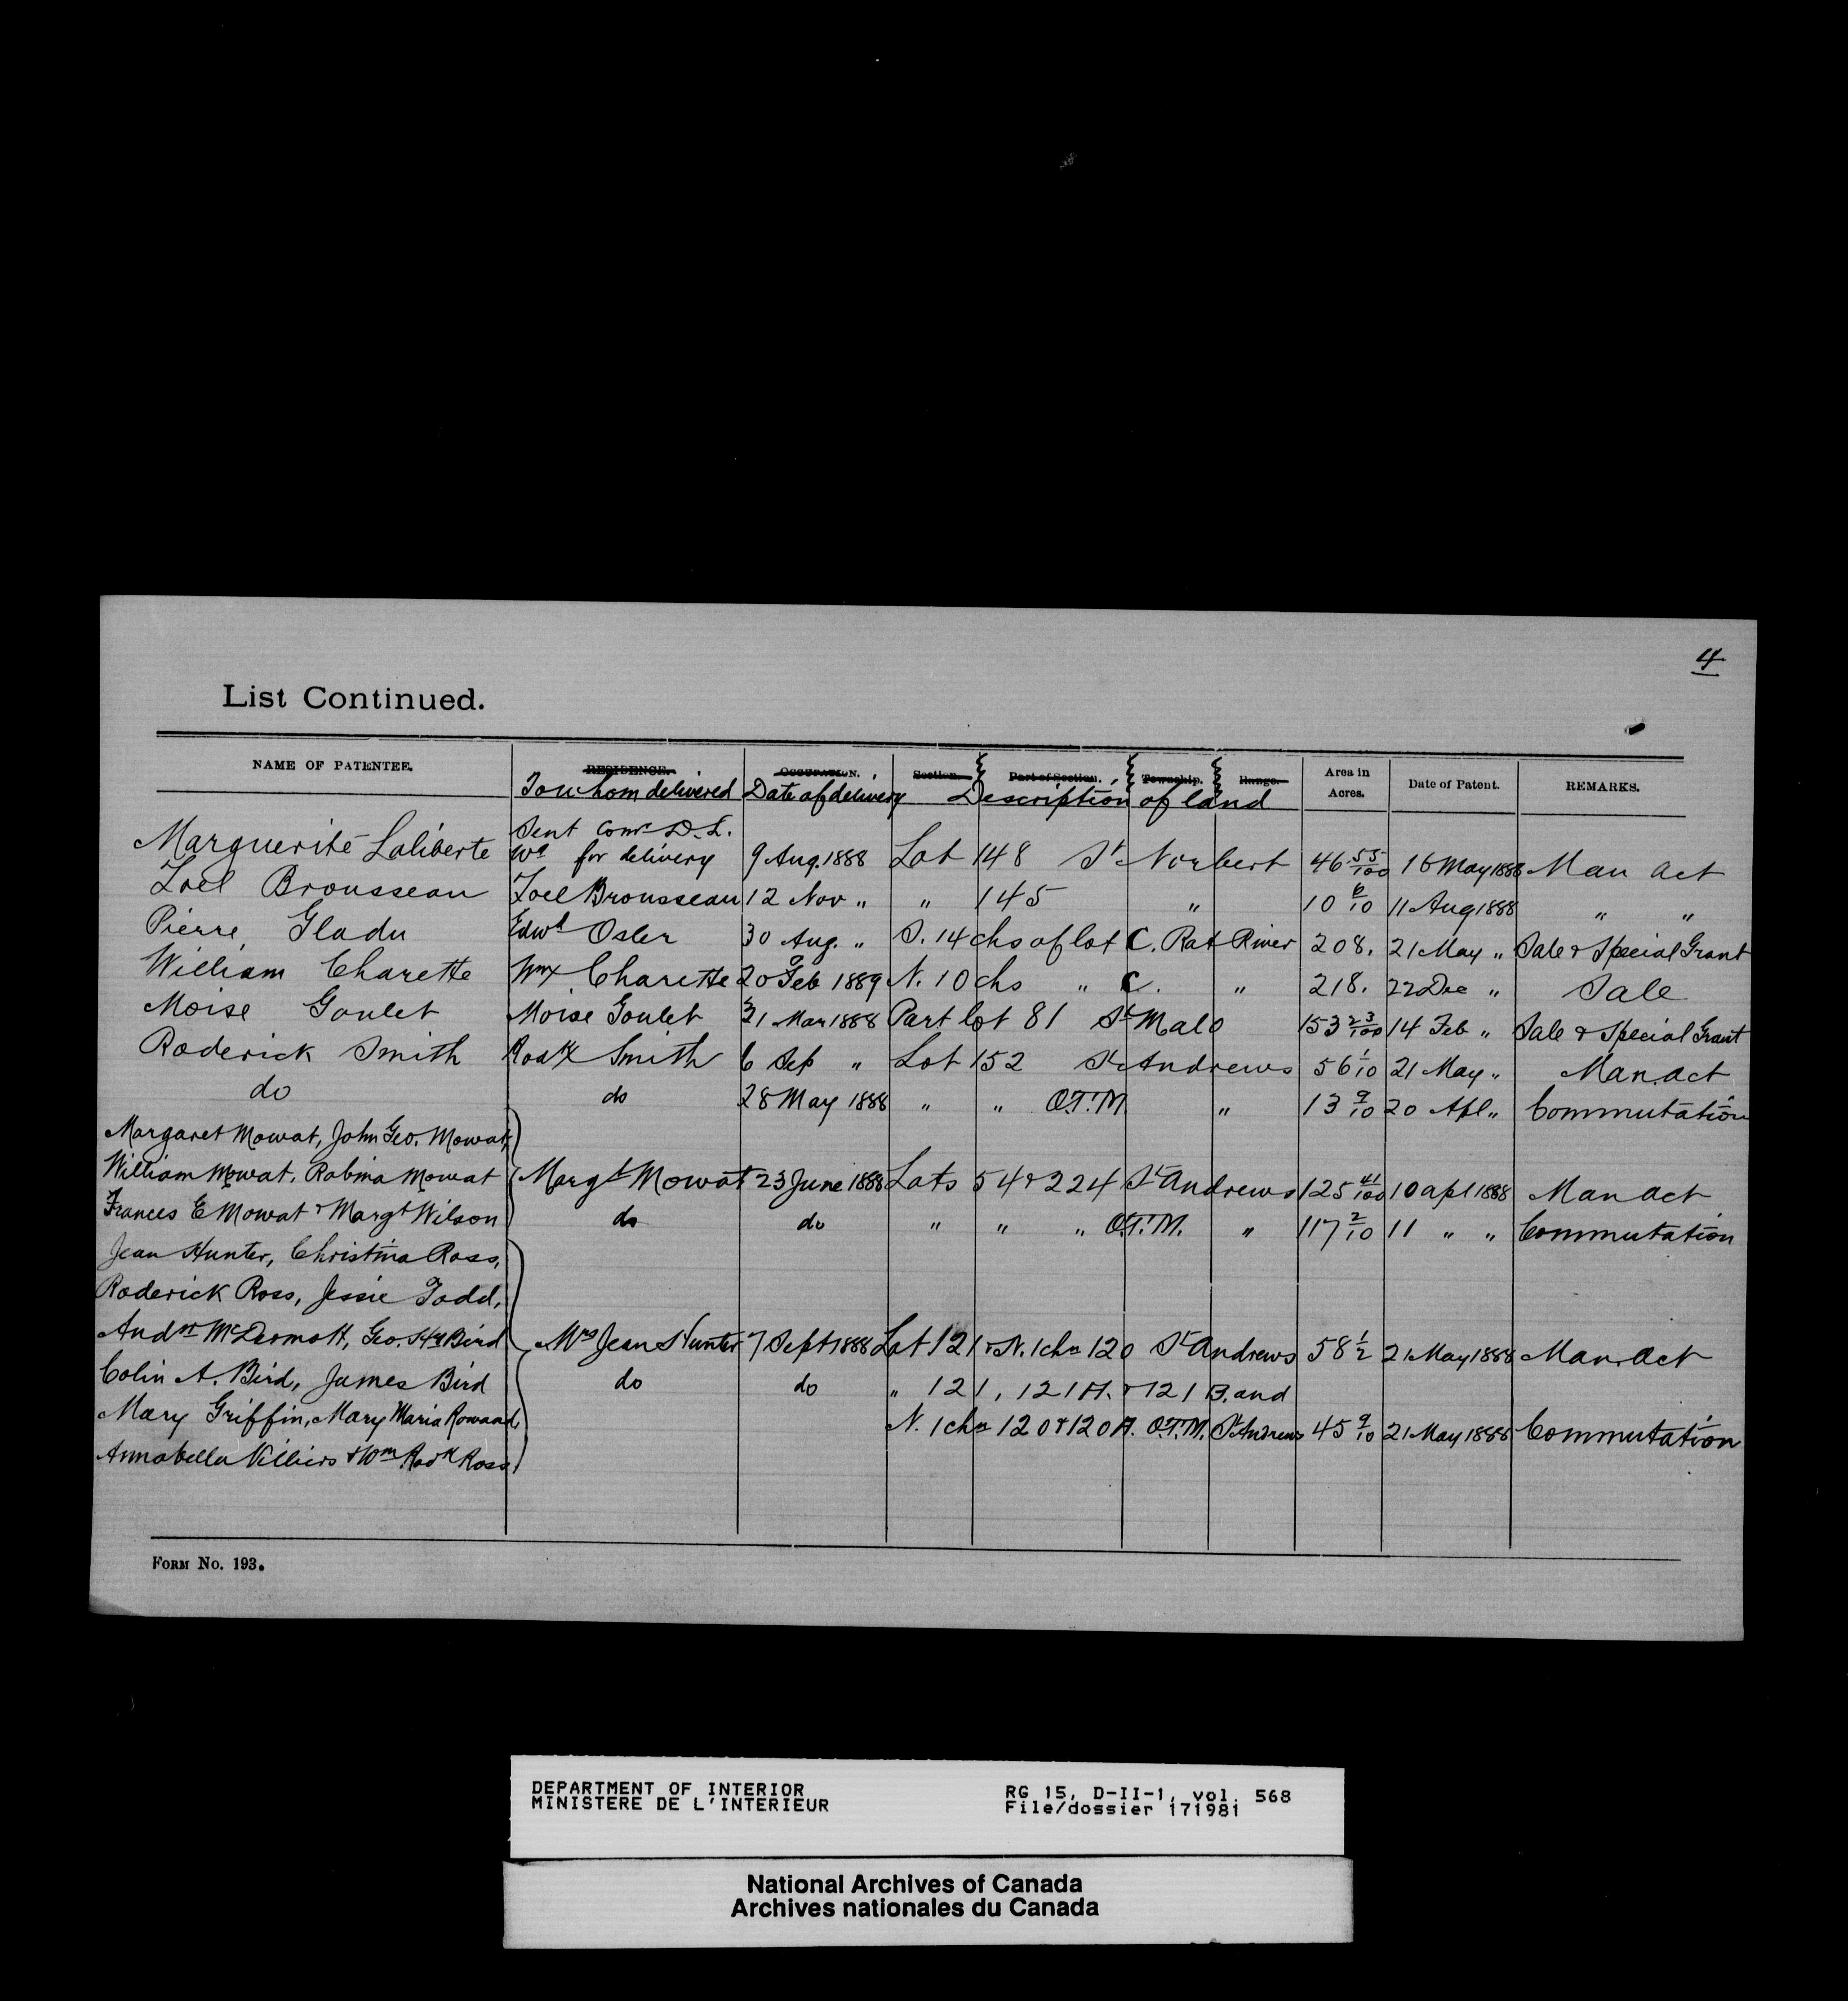 4
List Continued.
NAME OF PATENTEE. RESIDENCE. OCCUPATION. Section. Part of Section. Township. Range. Area in Acres. Date of Patent. REMARKS.
To whom delivered Date of delivery Description of land
Sent Comr D.L.
Marguerite Laliberte Wg for delivery 9 Aug. 1888 Lot 148 St Norbert 46 55/100 16 May 1888 Man Act
Zoel Brousseau Zoel Brousseau 12 Nov " " 145 " 10 6/10 11 Aug 1888 " "
Pierre Gladu Edwd Osler 30 Aug. " S. 14 chs of lot C. Rat River 208. 21 May " Sale & Special Grant
William Charette Wm Charette 20 Feb 1889 N. 10 chs " C. " 218. 22 Dec " Sale
Moise Goulet Moise Goulet 31 Mar 1888 Part lot 81 St Malo 153 23/100 14 Feb " Sale & Special Grant
Roderick Smith Rodk Smith 6 Sep " Lot 152 St Andrews 56 1/10 21 May " Man. Act
do do 28 May 1888 " " O.T.M. " 13 9/10 20 Apl " Commutation
Margaret Mowat, John Geo. Mowat,
William Mowat, Robina Mowat Margt Mowat 23 June 1888 Lots 54 & 224 St Andrews 125 41/100 10 Apl 1888 Man Act
Frances E Mowat & Margt Wilson do do " " " O.T.M. " 117 2/10 11 " " Commutation
Jean Hunter, Christina Ross,
Roderick Ross, Jessie Todd,
Andw McDermott, Geo. Hy Bird Mrs Jean Hunter 7 Sept 1888 Lot 121 & N. 1 chn 120 St Andrews 58 1/2 21 May 1888 Man. Act
Colin A. Bird, James Bird do do " 121, 121A. & 121 B. and
Mary Griffin, Mary Maria Rowand, N. 1 chn 120 & 120A. O.T.M. St Andrews 45 9/10 21 May 1888 Commutation
Annabella Villiers & Wm Rodk Ross
FORM NO. 193.
DEPARTMENT OF INTERIOR RG 15, D-II-1, vol. 568
MINISTERE DE L'INTERIEUR File/dossier 171981
National Archives of Canada
Archives nationales du Canada